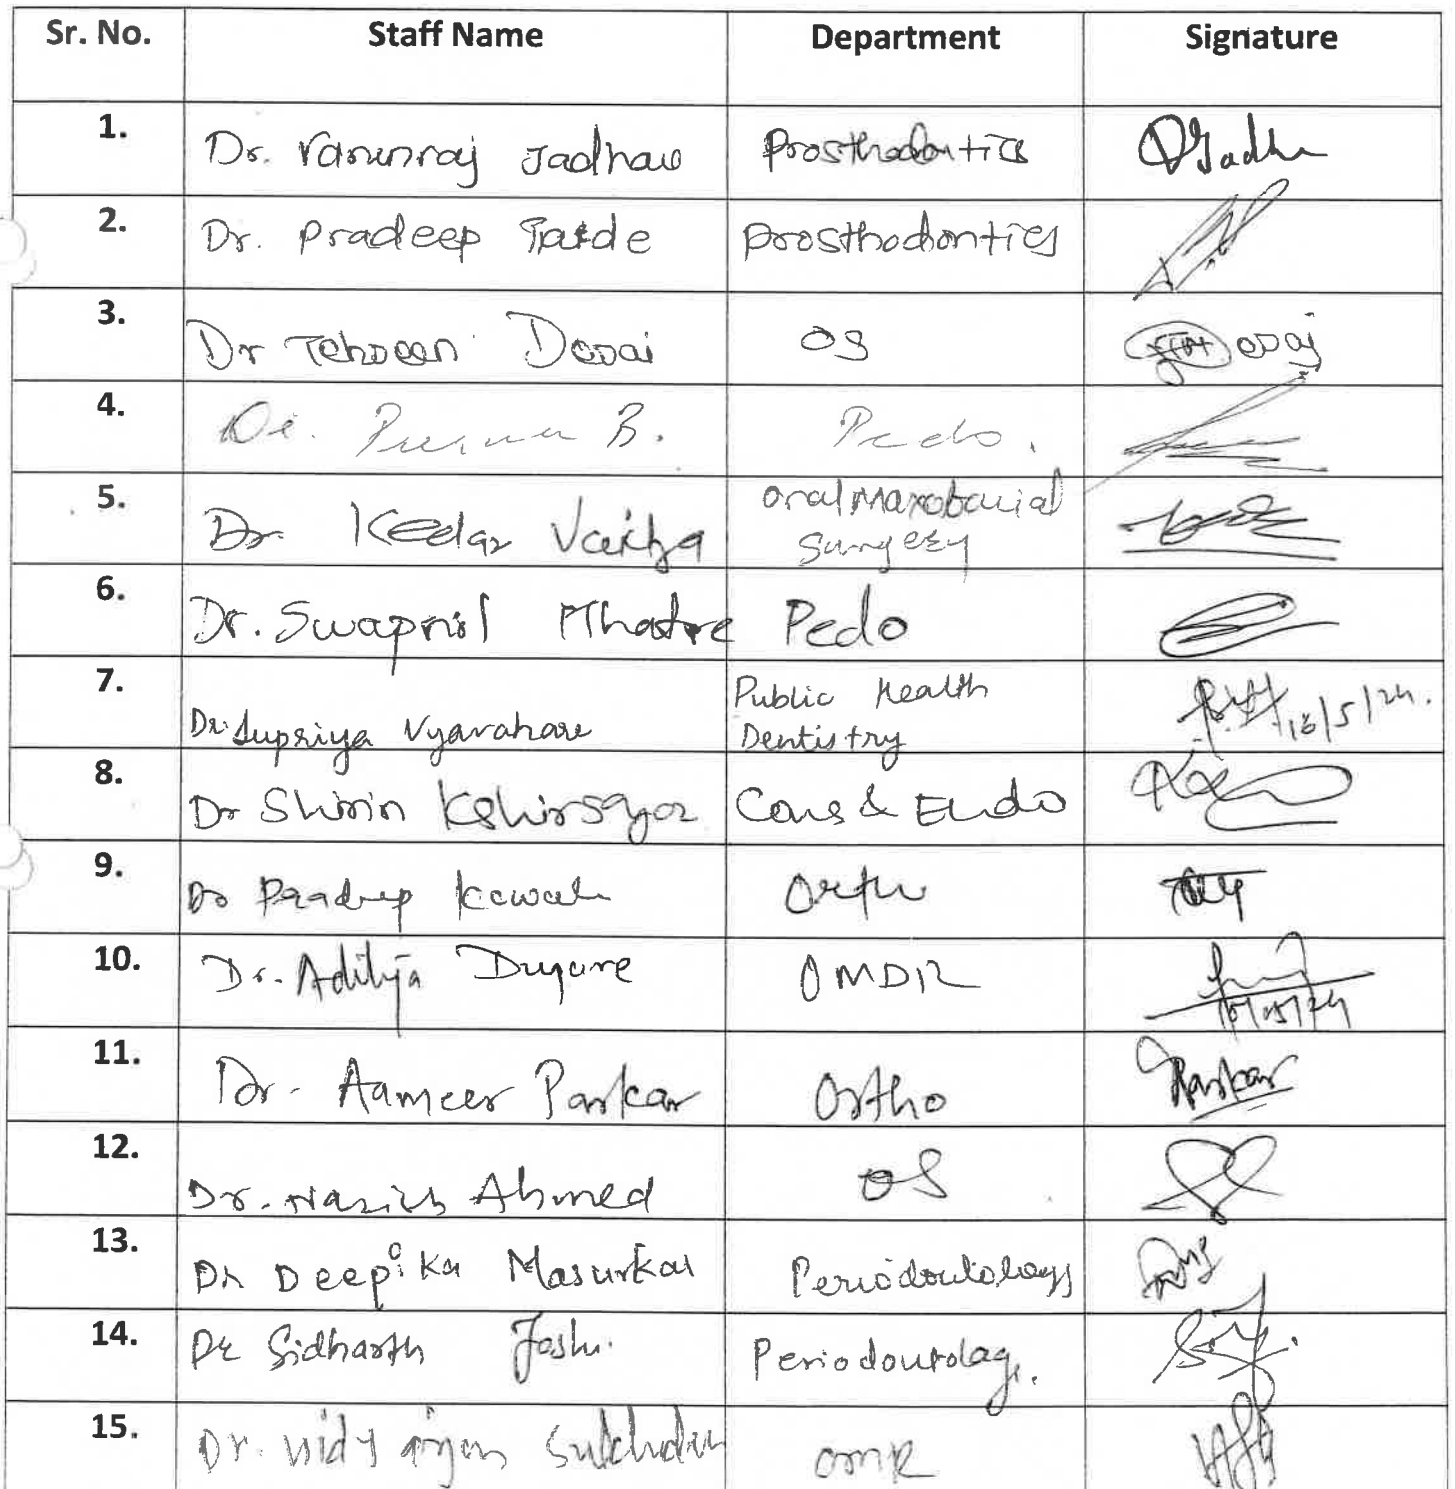 Sr. No. Staff Name Department Signature
1. Dr. Varunraj Jadhav Prosthodontics
2. Dr. Pradeep Taide Prosthodontics
3. Dr Tehseen Desai OS
4. B. Pedo.
5. Dr. Kedar Vaidya Oral Maxofacial
Surgery
6. Dr. Swapnil Mhatre Pedo
7. Dr. Supriya Vyavahare Public Health
Dentistry
8. Dr Shirin Kshirsagar Cons & Endo
9. Dr Pradeep Kawale Ortho
10. Dr. Aditya Dugare OMDR
11. Dr. Aameer Parkar Ortho Parkar
12. Dr. Ahmed OS
13. Dr Deepika Masurkar Periodontology
14. Dr Sidharth Joshi. Periodontology.
15. Dr. OMR